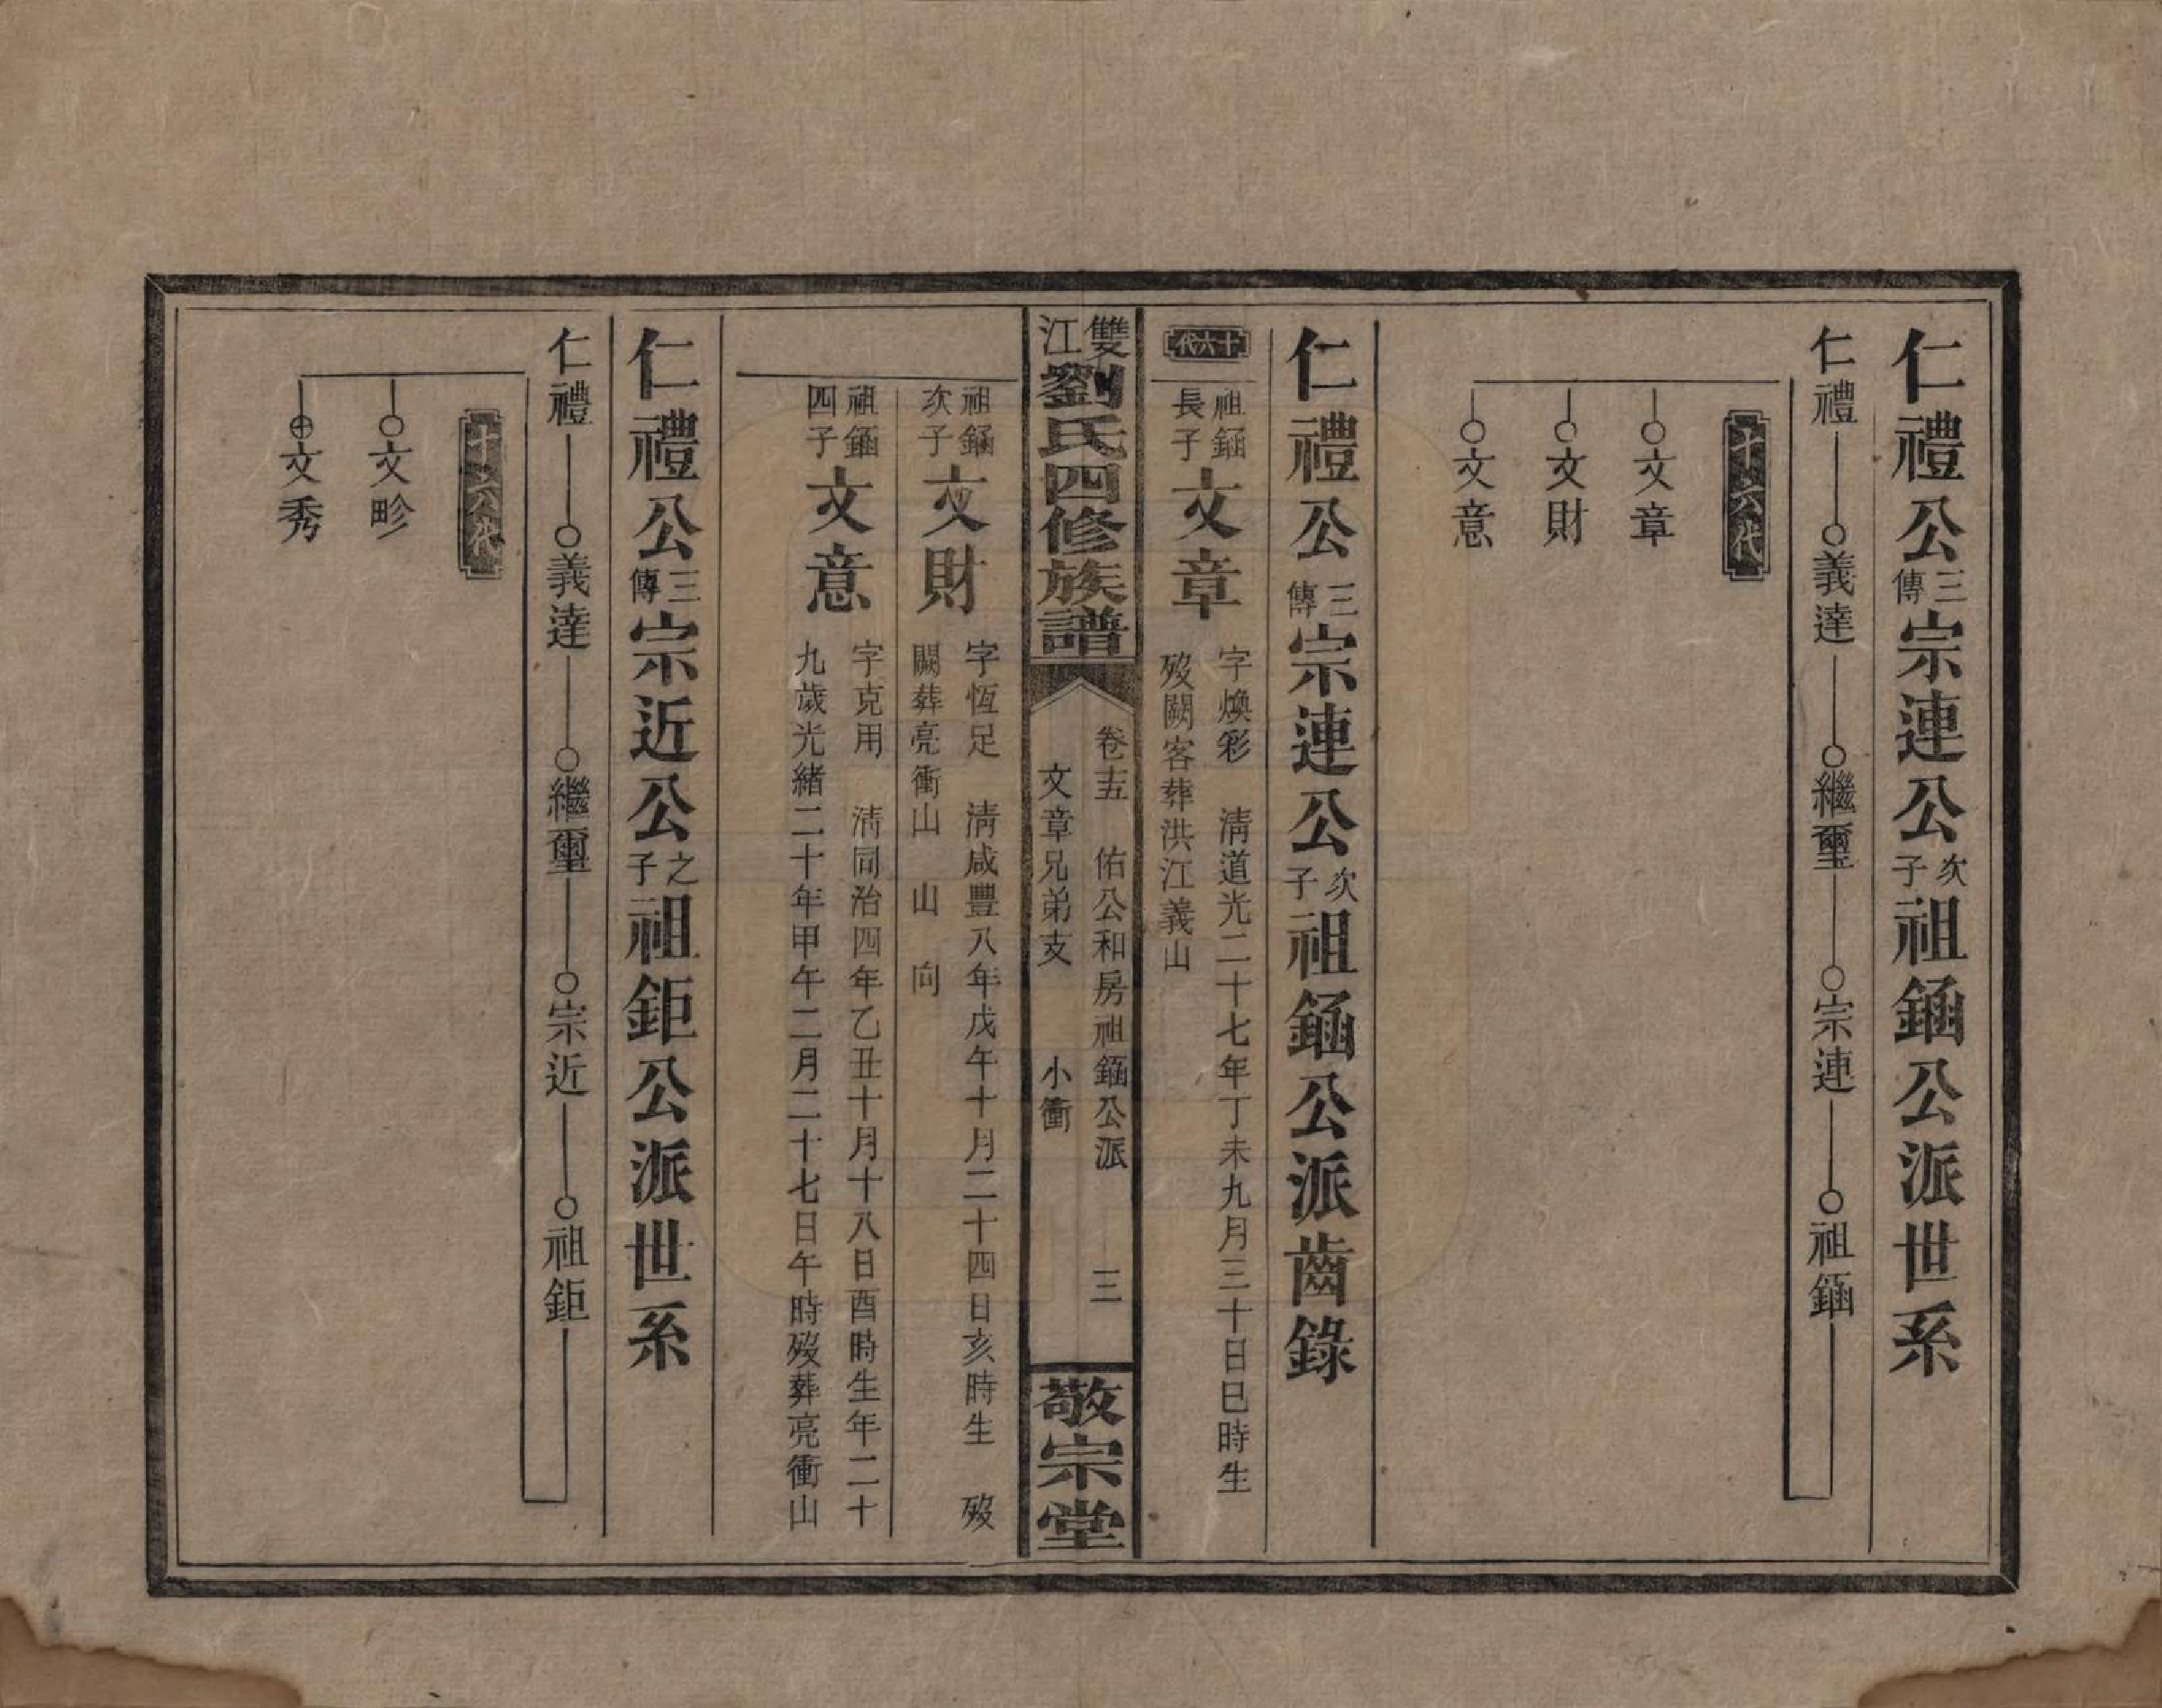 仁禮公三傳宗連公次子祖鍤公派世系
仁禮 義達 繼璽 宗連 祖鍤
十六代
文章
文財
文意
仁禮公三傳宗連公次子祖鍤公派齒錄
十六代
祖鍤長子文章 字煥彩 清道光二十七年丁未九月三十日巳時生
歿闕客葬洪江義山
雙江劉氏四修族譜
卷十五 佑公和房祖鍤公派 三
文章兄弟支 小衝
敬宗堂
祖鍤次子文財 字恆足 清咸豐八年戊午十月二十四日亥時生 歿
闕葬亮衝山 山 向
祖鍤四子文意 字克用 清同治四年乙丑十月十八日酉時生年二十
九歲光緒二十年甲午二月二十七日午時歿葬亮衝山
仁禮公三傳宗近公之子祖鉅公派世系
仁禮 義達 繼璽 宗近 祖鉅
十六代
文畛
文秀